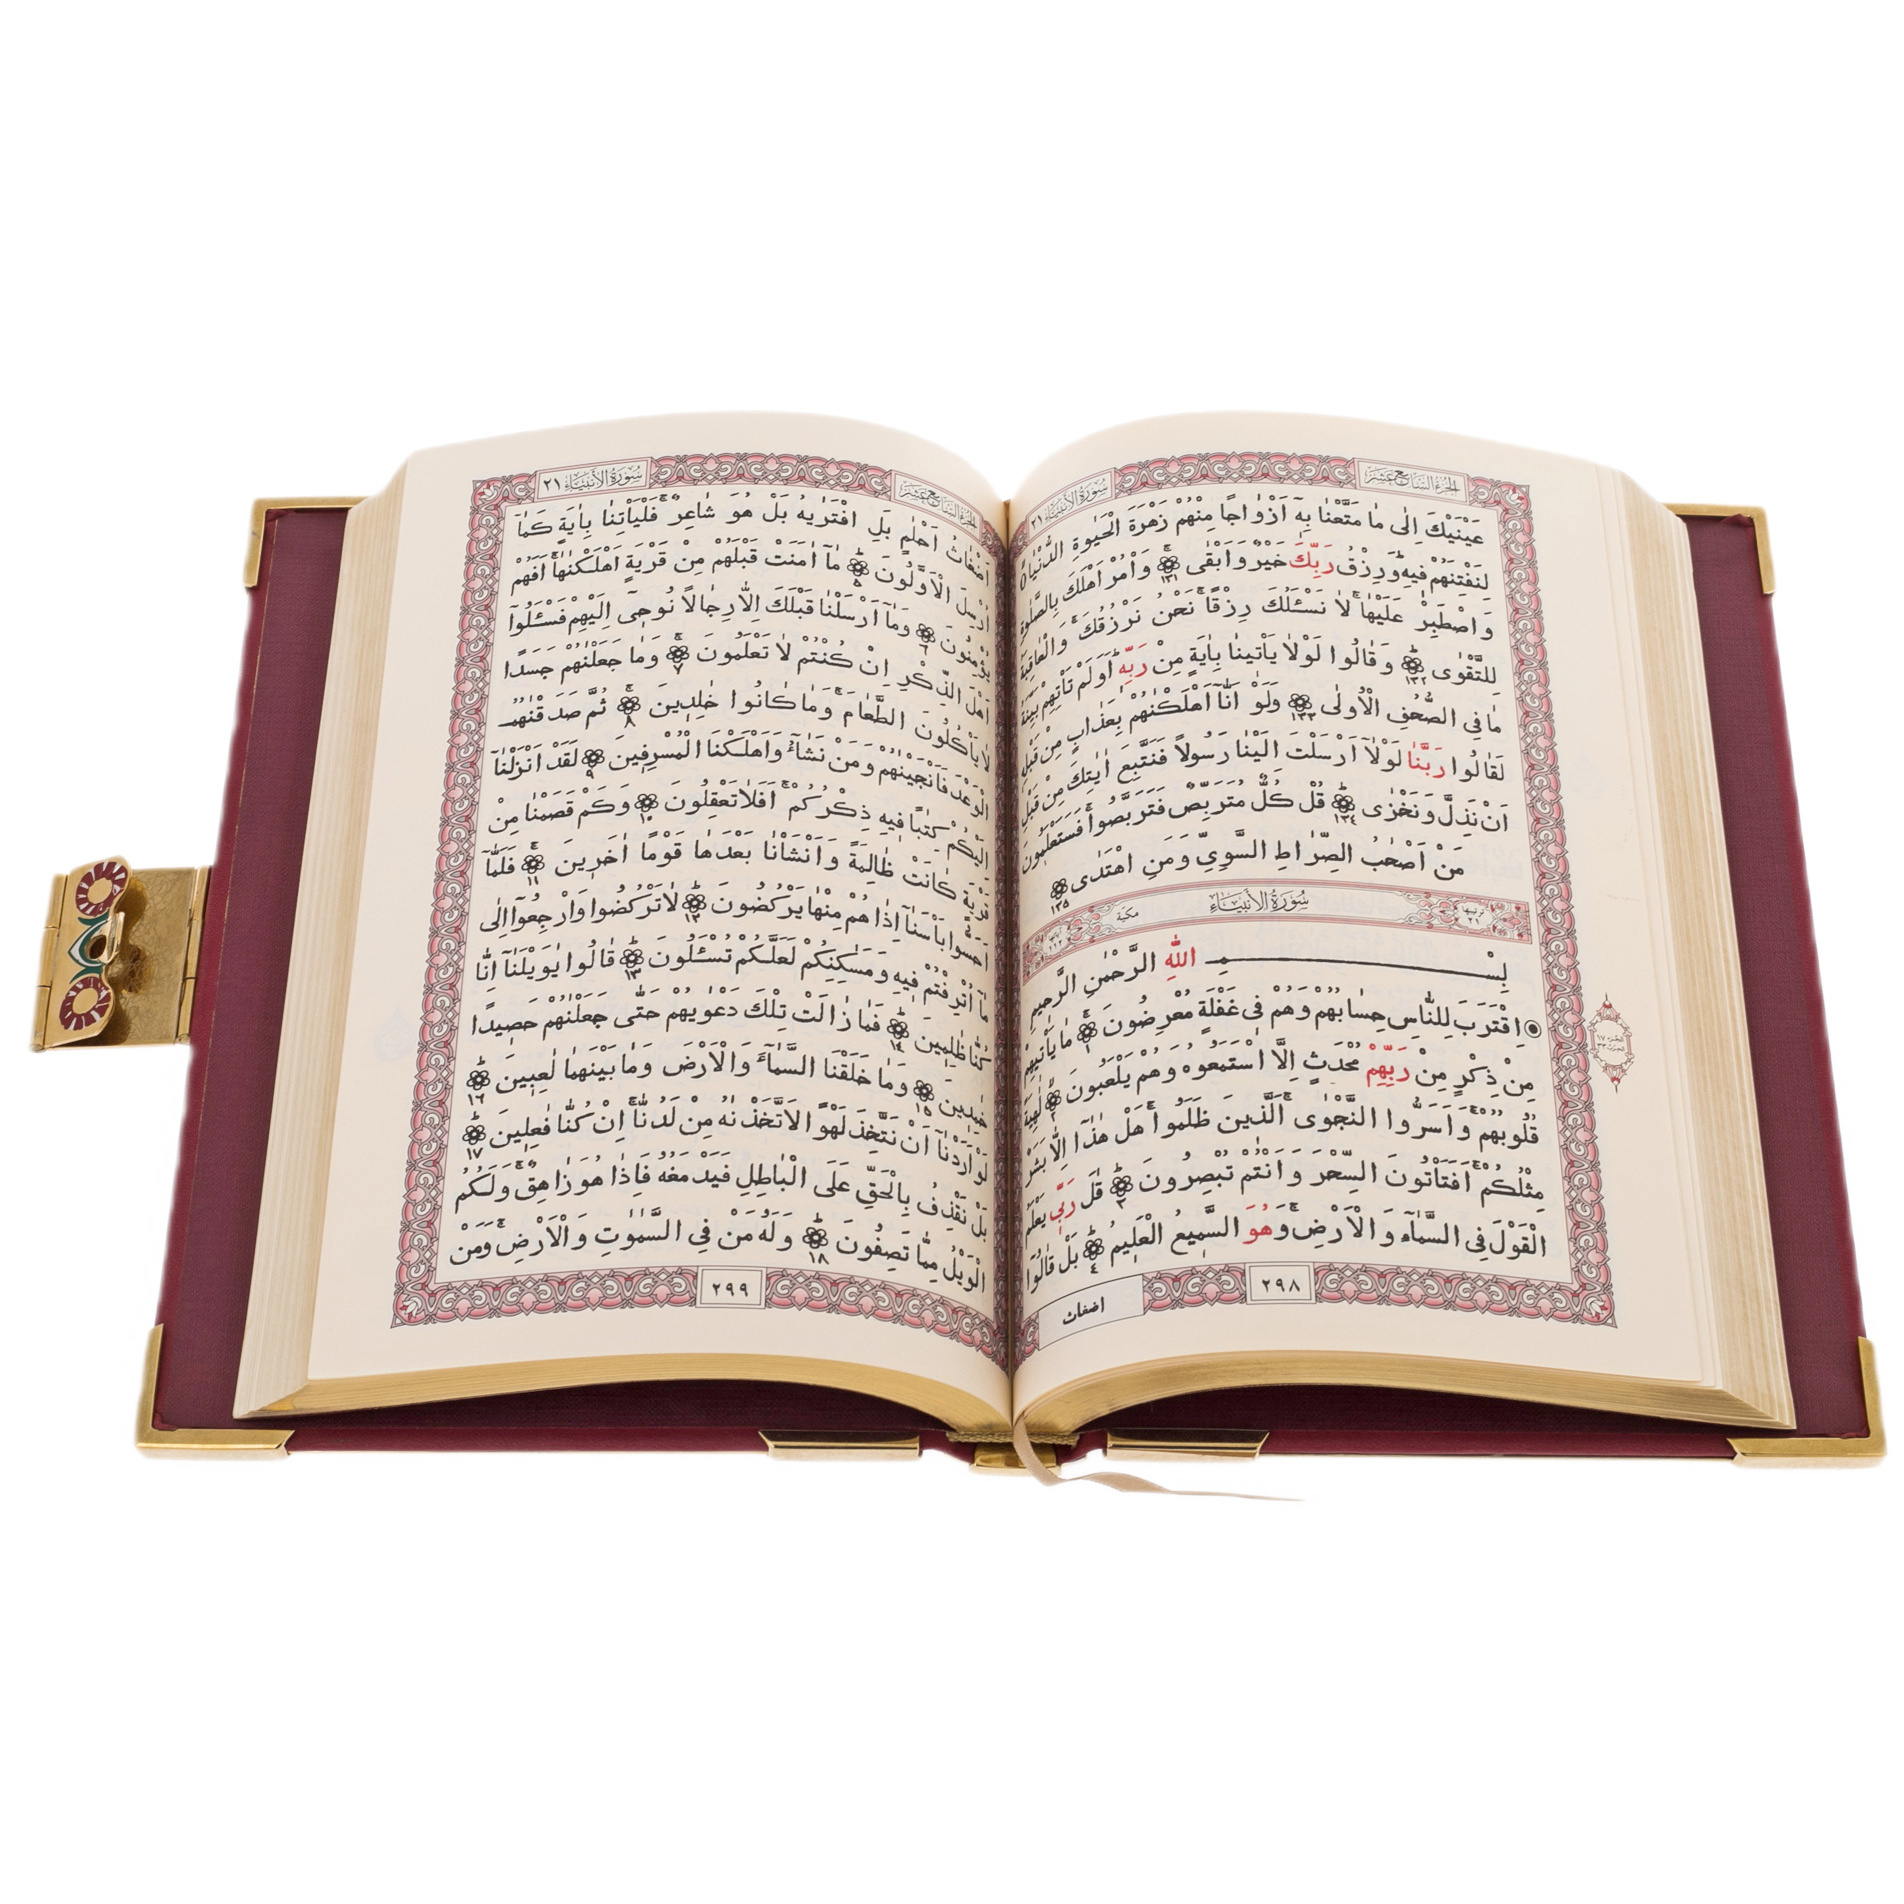 الجزء السابع عشر
سورة الأنبياء ٢١
عَيْنَيْكَ اِلٰى مٰا مَتَّعْنٰا بِهٖٓ اَزْوٰاجًا مِنْهُمْ زَهْرَةَ الْحَيٰوةِ الدُّنْيٰا
لِنَفْتِنَهُمْ فيهِ وَرِزْقُ رَبِّكَ خَيْرٌ وَاَبْقٰى ١٣١ وَأْمُرْ اَهْلَكَ بِالصَّلٰوةِ
وَاصْطَبِرْ عَلَيْهٰا لٰا نَسْـَٔلُكَ رِزْقًا نَحْنُ نَرْزُقُكَ وَالْعٰاقِبَةُ
لِلتَّقْوٰى ١٣٢ وَقٰالُوا لَوْلٰا يَأْتينٰا بِاٰيَةٍ مِنْ رَبِّهٖ اَوَلَمْ تَأْتِهِمْ بَيِّنَةُ
مٰا فِي الصُّحُفِ الْاُولٰى ١٣٣ وَلَوْ اَنّٰٓا اَهْلَكْنٰهُمْ بِعَذٰابٍ مِنْ قَبْلِهٖ
لَقٰالُوا رَبَّنٰا لَوْلٰٓا اَرْسَلْتَ اِلَيْنٰا رَسُولًا فَنَتَّبِعَ اٰيٰتِكَ مِنْ قَبْلِ
اَنْ نَذِلَّ وَنَخْزٰى ١٣٤ قُلْ كُلٌّ مُتَرَبِّصٌ فَتَرَبَّصُوا فَسَتَعْلَمُونَ
مَنْ اَصْحٰبُ الصِّرٰاطِ السَّوِيِّ وَمَنِ اهْتَدٰى ١٣٥
ترتيبها ٢١ سُورَةُ الْأَنْبِيَاءِ مكية آياتها ١١٢
بِسْمِ اللّٰهِ الرَّحْمٰنِ الرَّحيمِ
اِقْتَرَبَ لِلنّٰاسِ حِسٰابُهُمْ وَهُمْ في غَفْلَةٍ مُعْرِضُونَ ١ مٰا يَأْتيهِمْ
مِنْ ذِكْرٍ مِنْ رَبِّهِمْ مُحْدَثٍ اِلَّا اسْتَمَعُوهُ وَهُمْ يَلْعَبُونَ ٢ لٰاهِيَةً
قُلُوبُهُمْ وَاَسَرُّوا النَّجْوٰى الَّذينَ ظَلَمُوا هَلْ هٰذٰٓا اِلّٰا بَشَرٌ
مِثْلُكُمْ اَفَتَأْتُونَ السِّحْرَ وَاَنْتُمْ تُبْصِرُونَ ٣ قٰلَ رَبّي يَعْلَمُ
الْقَوْلَ فِي السَّمٰٓاءِ وَالْاَرْضِ وَهُوَ السَّميعُ الْعَليمُ ٤ بَلْ قٰالُٓوا
٢٩٨
اضغاث
الجزء ١٧
الحزب ٣٣
الجزء السابع عشر
سورة الأنبياء ٢١
اَضْغٰاثُ اَحْلٰمٍ بَلِ افْتَرٰيهُ بَلْ هُوَ شٰاعِرٌ فَلْيَأْتِنٰا بِاٰيَةٍ كَمٰٓا
اُرْسِلَ الْاَوَّلُونَ ٥ مٰٓا اٰمَنَتْ قَبْلَهُمْ مِنْ قَرْيَةٍ اَهْلَكْنٰهٰا اَفَهُمْ
يُؤْمِنُونَ ٦ وَمٰٓا اَرْسَلْنٰا قَبْلَكَ اِلّٰا رِجٰالًا نُوحي اِلَيْهِمْ فَسْـَٔلُوٓا
اَهْلَ الذِّكْرِ اِنْ كُنْتُمْ لٰا تَعْلَمُونَ ٧ وَمٰا جَعَلْنٰهُمْ جَسَدًا
لٰا يَأْكُلُونَ الطَّعٰامَ وَمٰا كٰانُوا خٰلِدينَ ٨ ثُمَّ صَدَقْنٰهُمُ
الْوَعْدَ فَاَنْجَيْنٰهُمْ وَمَنْ نَشٰٓاءُ وَاَهْلَكْنَا الْمُسْرِفينَ ٩ لَقَدْ اَنْزَلْنٰٓا
اِلَيْكُمْ كِتٰبًا فيهِ ذِكْرُكُمْ اَفَلٰا تَعْقِلُونَ ١٠ وَكَمْ قَصَمْنٰا مِنْ
قَرْيَةٍ كٰانَتْ ظٰالِمَةً وَاَنْشَأْنٰا بَعْدَهٰا قَوْمًا اٰخَرينَ ١١ فَلَمّٰٓا
اَحَسُّوا بَأْسَنٰٓا اِذٰا هُمْ مِنْهٰا يَرْكُضُونَ ١٢ لٰا تَرْكُضُوا وَارْجِعُوٓا اِلٰى
مٰٓا اُتْرِفْتُمْ فيهِ وَمَسٰكِنِكُمْ لَعَلَّكُمْ تُسْـَٔلُونَ ١٣ قٰالُوا يٰوَيْلَنٰٓا اِنّٰا
كُنّٰا ظٰلِمينَ ١٤ فَمٰا زٰالَتْ تِلْكَ دَعْوٰيهُمْ حَتّٰى جَعَلْنٰهُمْ حَصيدًا
خٰمِدينَ ١٥ وَمٰا خَلَقْنَا السَّمٰٓاءَ وَالْاَرْضَ وَمٰا بَيْنَهُمٰا لٰعِبينَ ١٦
لَوْ اَرَدْنٰٓا اَنْ نَتَّخِذَ لَهْوًا لَاتَّخَذْنٰهُ مِنْ لَدُنّٰٓا اِنْ كُنّٰا فٰعِلينَ ١٧
بَلْ نَقْذِفُ بِالْحَقِّ عَلَى الْبٰاطِلِ فَيَدْمَغُهُ فَاِذٰا هُوَ زٰاهِقٌ وَلَكُمُ
الْوَيْلُ مِمّٰا تَصِفُونَ ١٨ وَلَهُ مَنْ فِي السَّمٰوٰتِ وَالْاَرْضِ وَمَنْ
٢٩٩